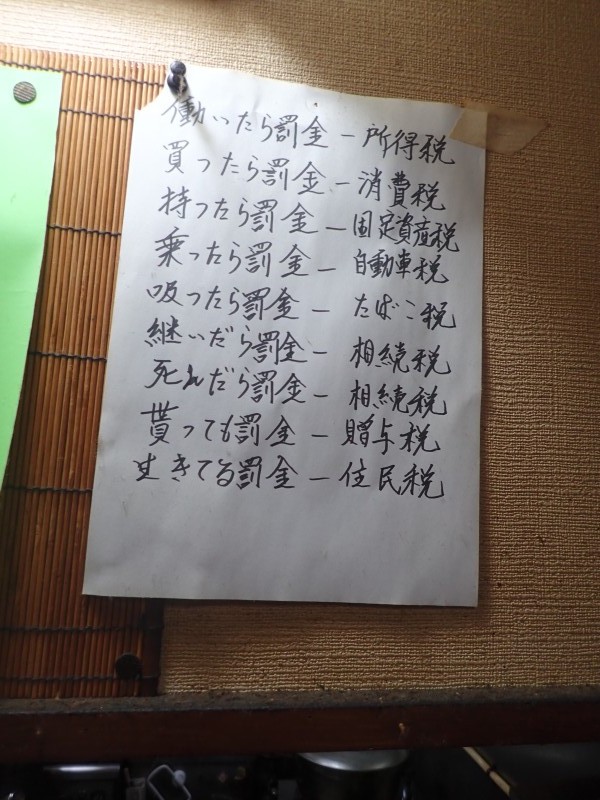 働いたら罰金－所得税
買ったら罰金－消費税
持ったら罰金－固定資産税
乗ったら罰金－自動車税
吸ったら罰金－たばこ税
継いだら罰金－相続税
死んだら罰金－相続税
貰っても罰金－贈与税
生きてる罰金－住民税